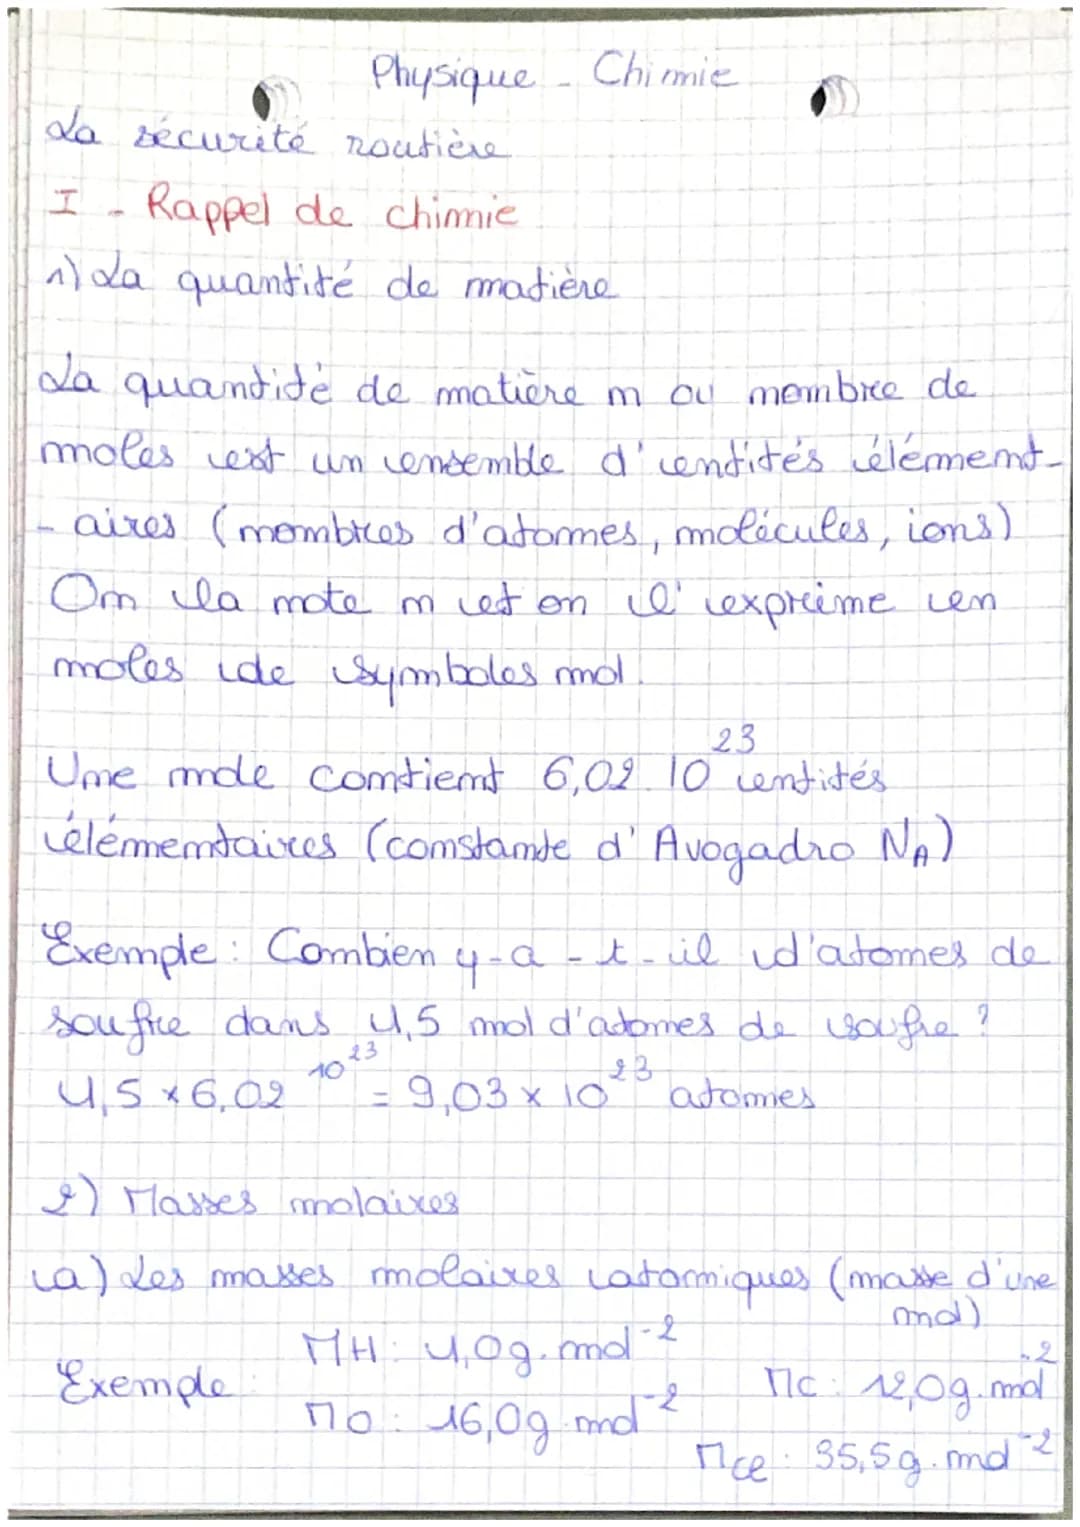 Physique - Chimie
La sécurité routière
I - Rappel de chimie
1) La quantité de matière
La quantité de matière n ou nombre de
moles est un ensemble d'entités élément-
-aires (nombres d'atomes, molécules, ions)
On la note n et on l'exprime en
moles de symboles mol.
Une mole contient 6,02.10²³ entités
élémentaires (constante d'Avogadro NA)
Exemple : Combien y-a-t-il d'atomes de
soufre dans 1,5 mol d'atomes de soufre ?
1,5 × 6,02 10²³ = 9,03 × 10²³ atomes
2) Masses molaires
a) Les masses molaires atomiques (masse d'une
mol)
MH : 1,0g.mol⁻²
Exemple : MC : 12,0g.mol⁻²
MO : 16,0g.mol⁻²
MCl : 35,5g.mol⁻²